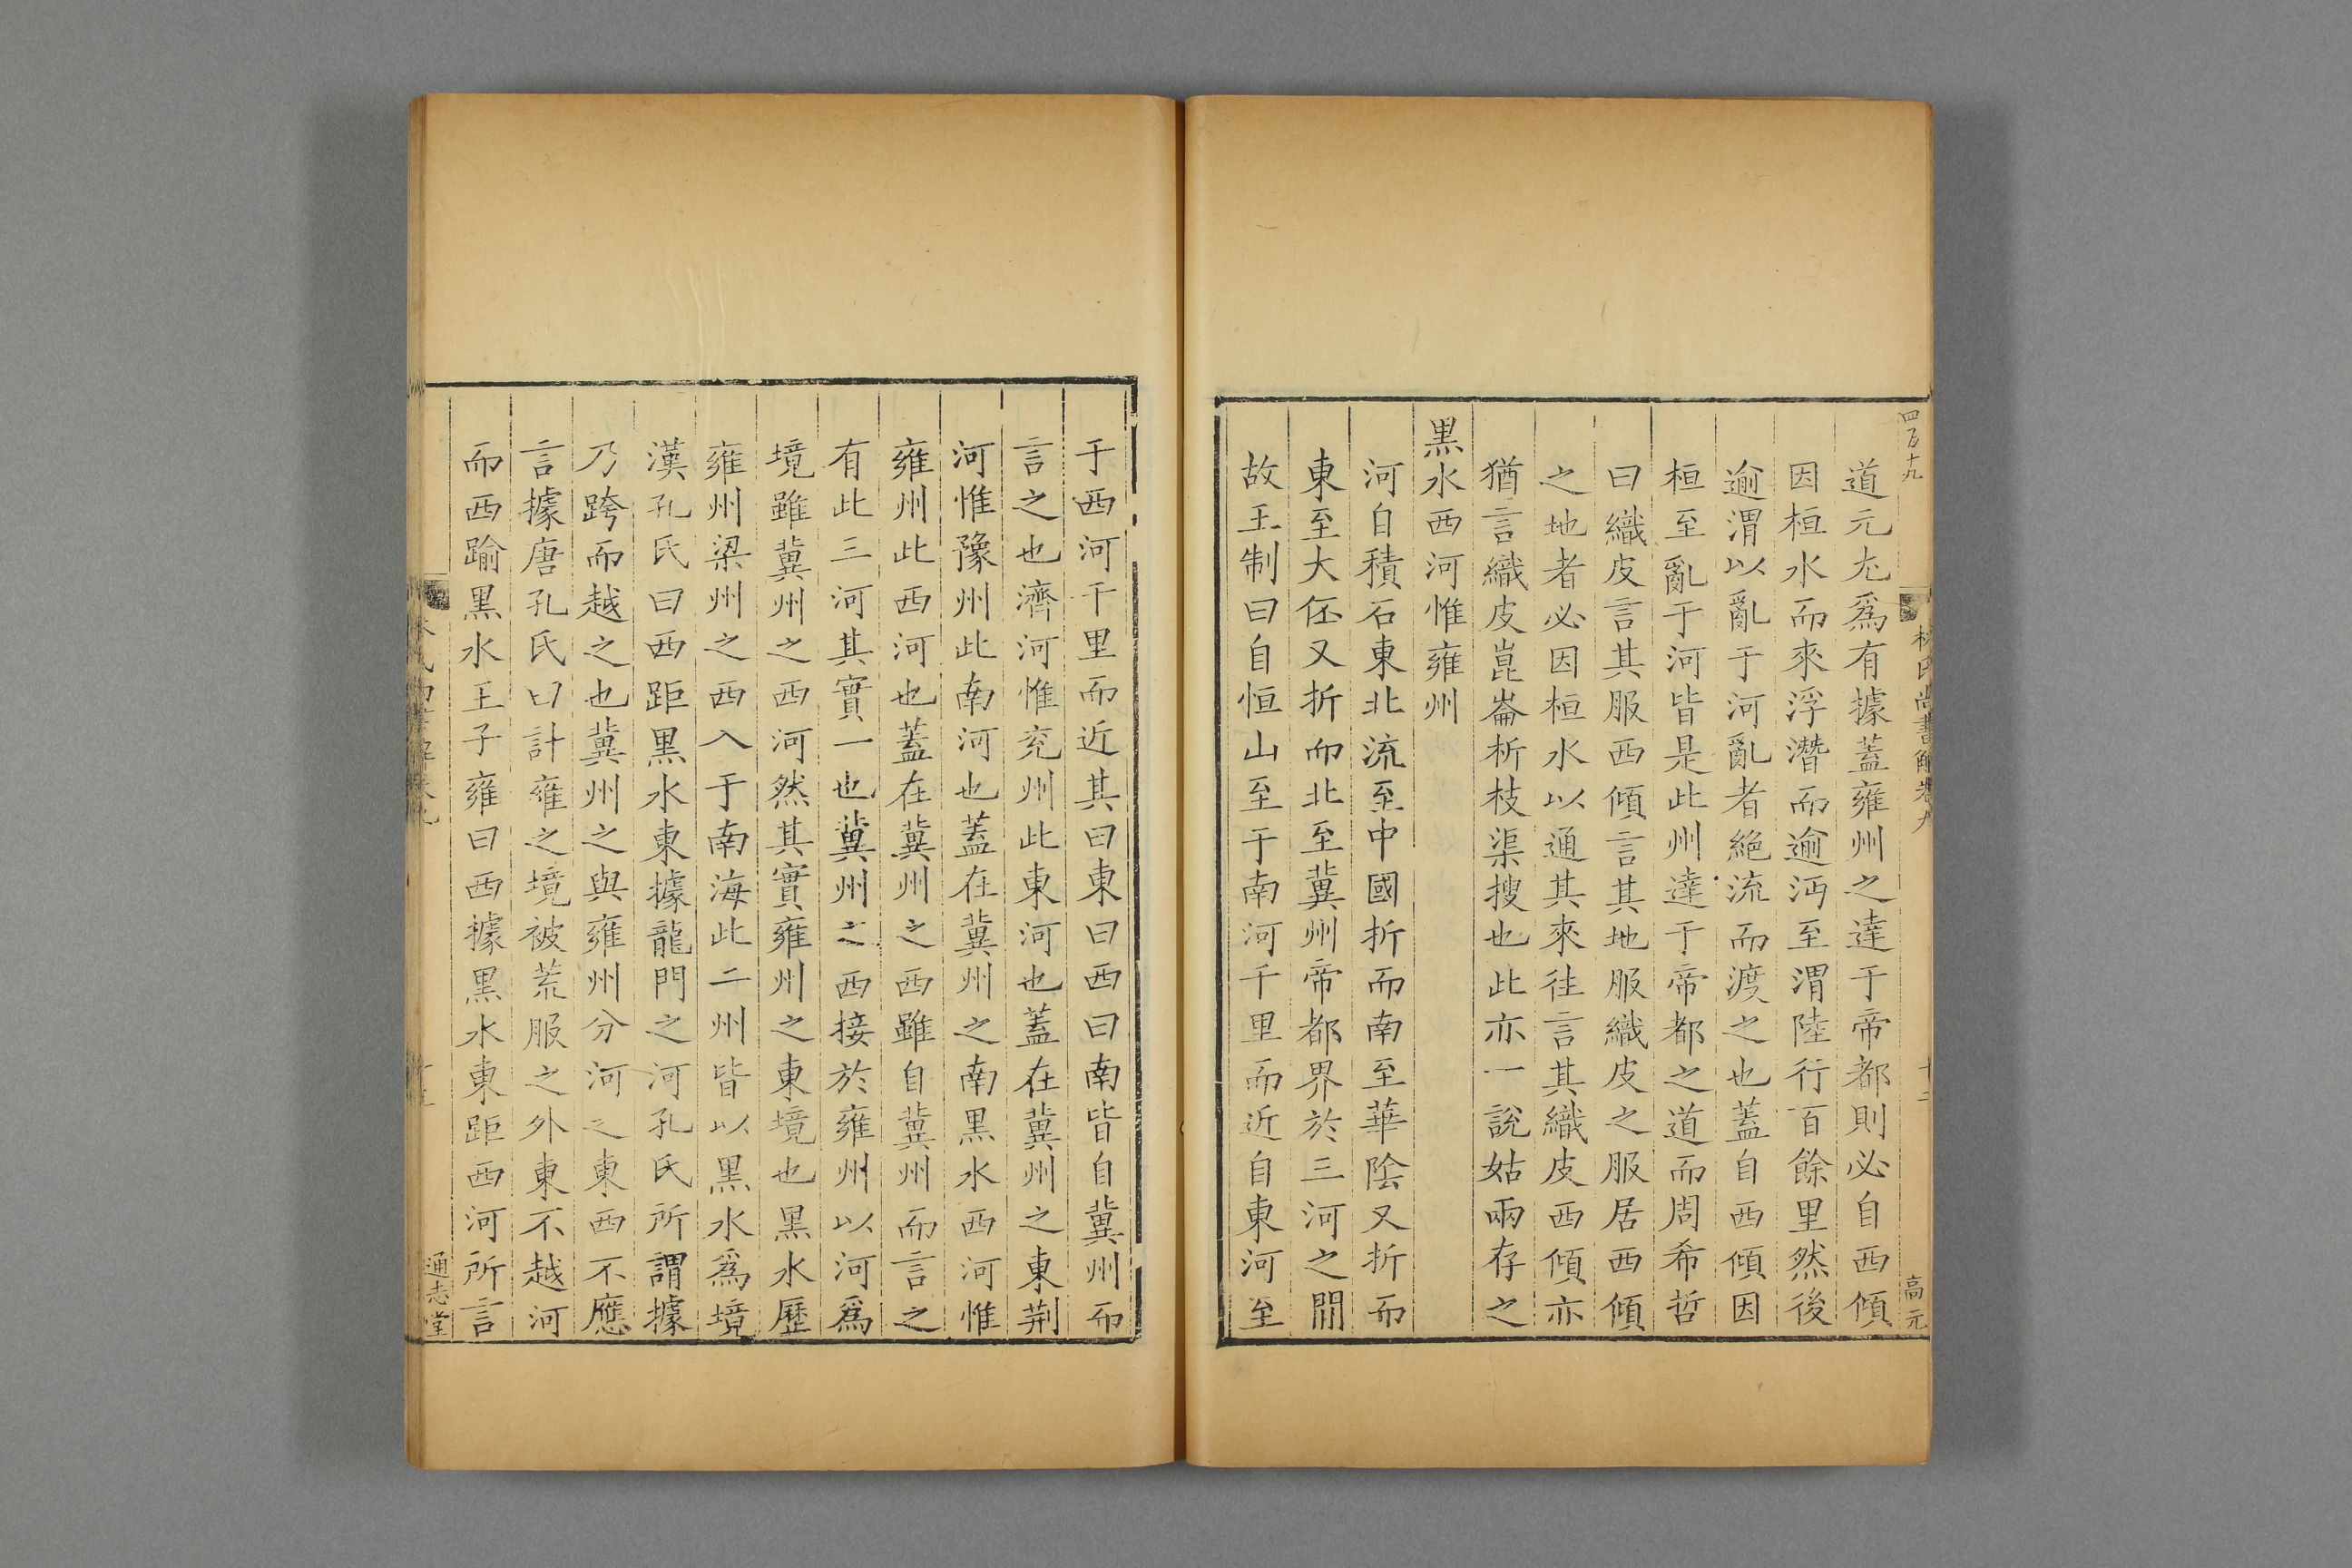 四百十九
林氏尚書解卷九
十二
高元
道元尤爲有據蓋雍州之達于帝都則必自西傾
因桓水而來浮潛而逾沔至渭陸行百餘里然後
逾渭以亂于河亂者絶流而渡之也蓋自西傾因
桓至亂于河皆是此州達于帝都之道而周希哲
曰織皮言其服西傾言其地服織皮之服居西傾
之地者必因桓水以通其來往言其織皮西傾亦
猶言織皮崑崙析枝渠搜也此亦一說姑兩存之
黑水西河惟雍州
河自積石東北流至中國折而南至華陰又折而
東至大伾又折而北至冀州帝都界於三河之閒
故王制曰自恒山至于南河千里而近自東河至
于西河千里而近其曰東曰西曰南皆自冀州而
言之也濟河惟兖州此東河也蓋在冀州之東荆
河惟豫州此南河也蓋在冀州之南黑水西河惟
雍州此西河也蓋在冀州之西雖自冀州而言之
有此三河其實一也冀州之西接於雍州以河爲
境雖冀州之西河然其實雍州之東境也黑水歷
雍州梁州之西入于南海此二州皆以黑水爲境
漢孔氏曰西距黑水東據龍門之河孔氏所謂據
乃跨而越之也冀州之與雍州分河之東西不應
言據唐孔氏曰計雍之境被荒服之外東不越河
而西踰黑水王子雍曰西據黑水東距西河所言
通志堂